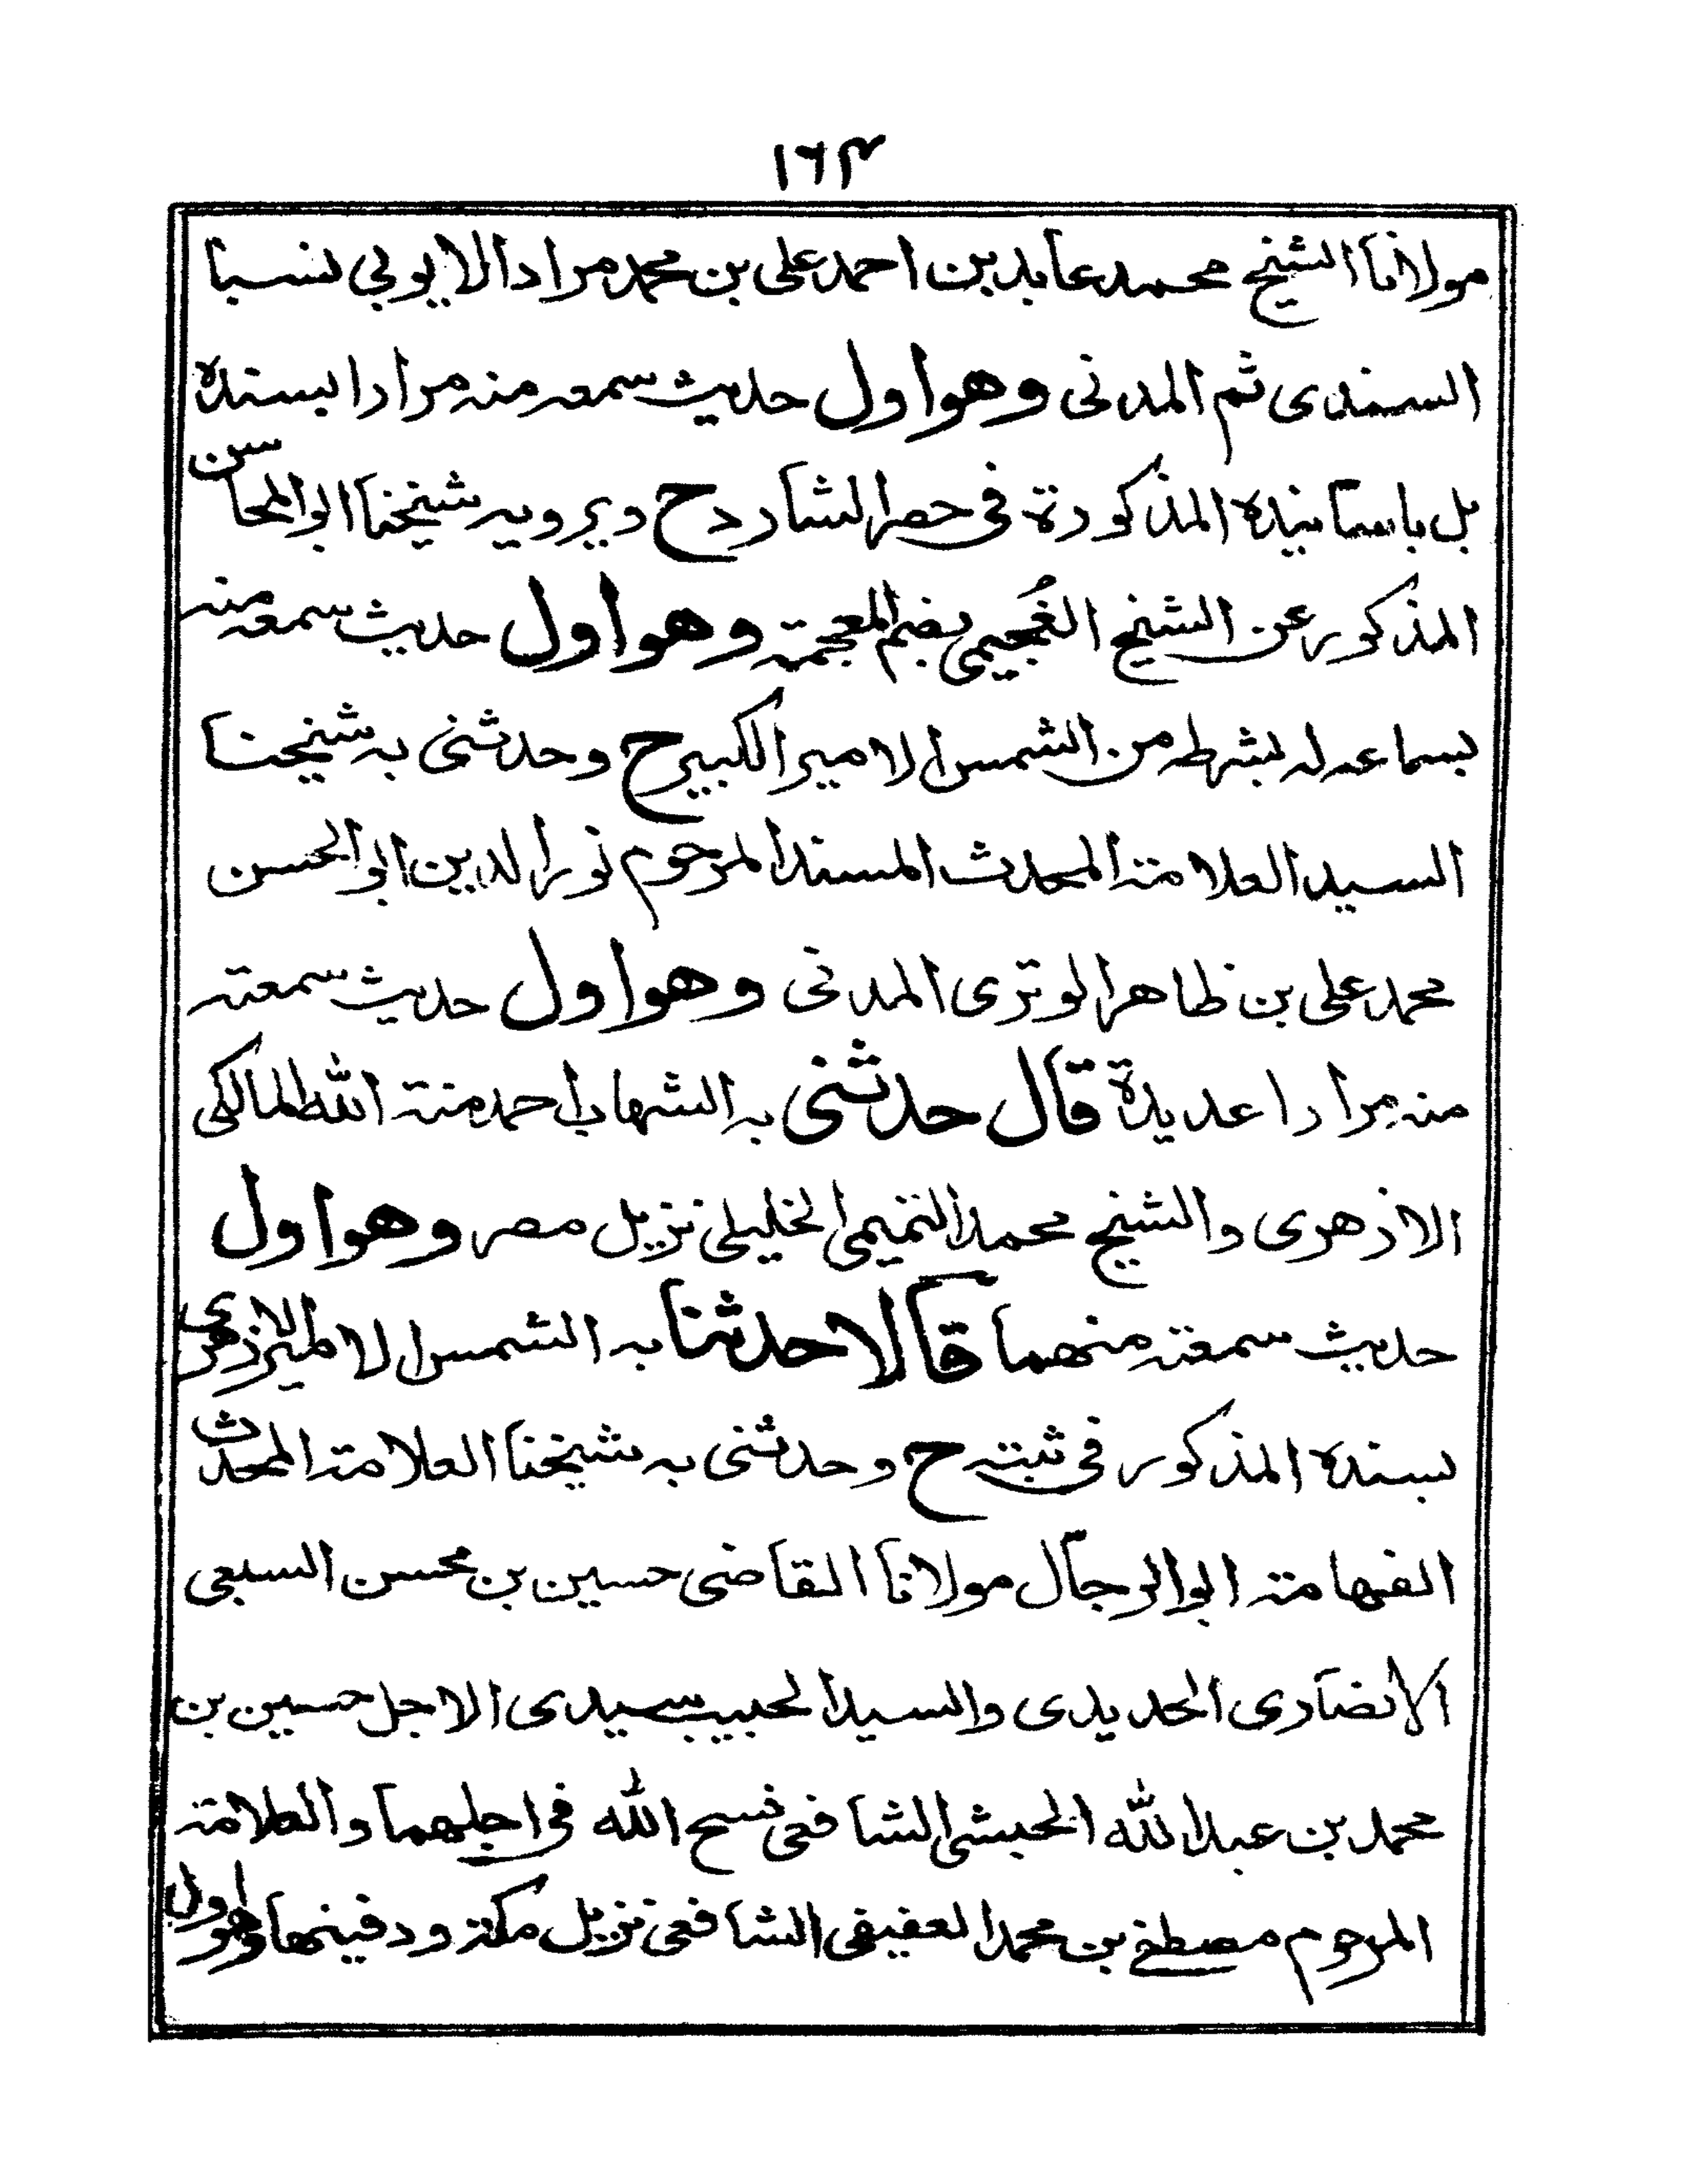 ١٦٤
مولانا الشيخ محمد عابد بن احمد على بن محمد مراد الايوبي نسبا
السندى ثم المدنى وهو اول حديث سمعه منه مرارا بسنده
بل باسانيده المذكورة فى حصر الشارد ح ويرويه شيخنا ابو المحاسن
المذكور عن الشيخ الغُجيمى بضم المعجمة وهو اول حديث سمعه منه
بسماعه له بشرطه من الشمس الامير الكبير ح وحدثنى به شيخنا
السيد العلامة المحدث المسند المرحوم نور الدين ابو الحسن
محمد على بن ظاهر الوترى المدنى وهو اول حديث سمعته
منه مرارا عديدة قال حدثنى به الشهاب احمد منة الله المالكى
الازهرى والشيخ محمد التميمى الخليلى نزيل مصر وهو اول
حديث سمعته منهما قالا حدثنا به الشمس الامير الازهرى
بسنده المذكور فى ثبته ح وحدثنى به شيخنا العلامة المحدث
الفهامة ابو الرجال مولانا القاضى حسين بن محسن السبعى
الانصارى الحديدى والسيد الحبيب سيدى الاجل حسين بن
محمد بن عبد الله الحبشى الشافعى فسح الله فى اجلهما والعلامة
المرحوم مصطفى بن محمد العفيفى الشافعى نزيل مكة ودفينها وهو اول